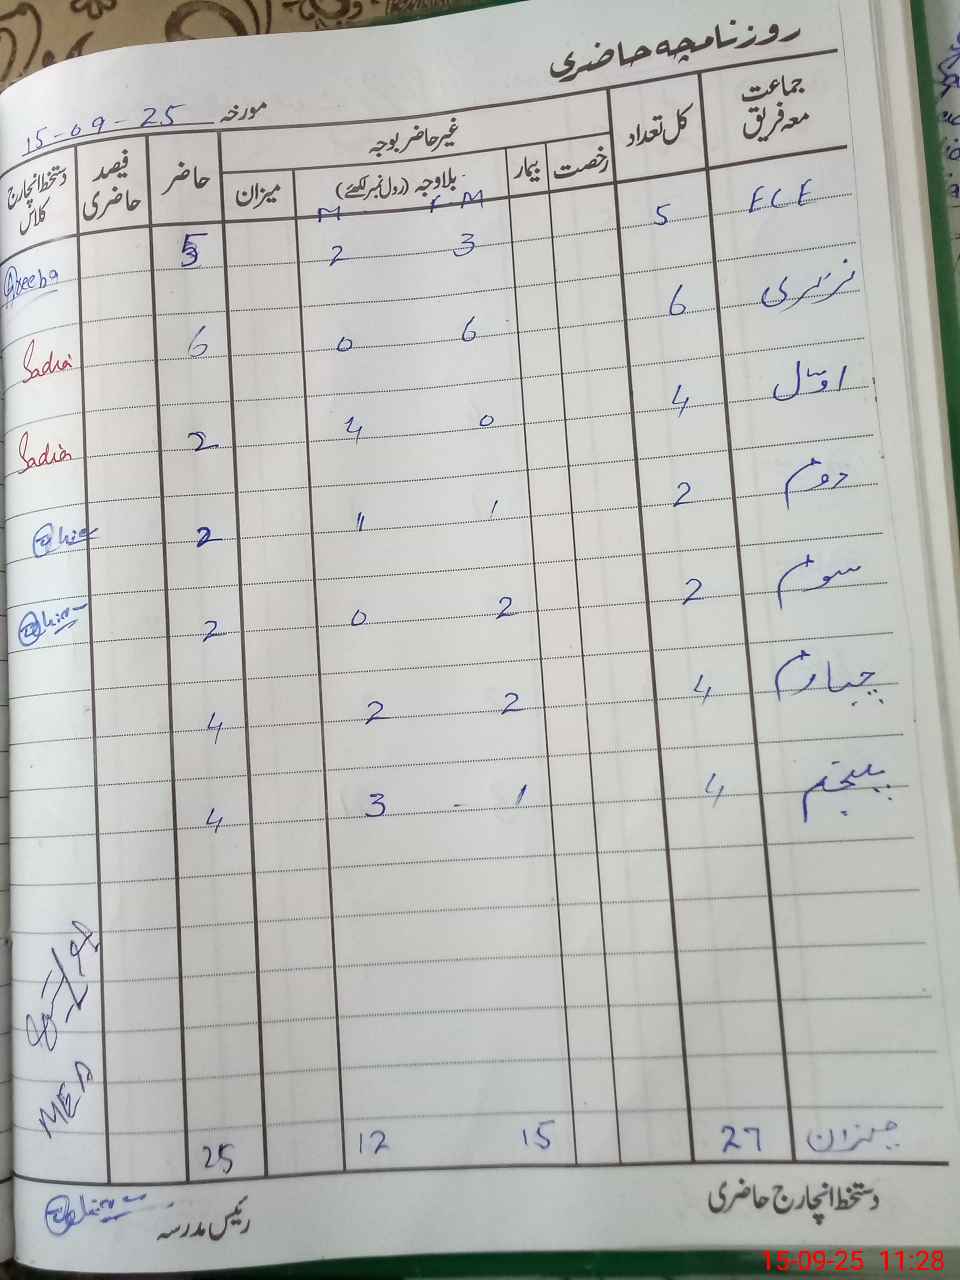 روزنامچہ حاضری
مورخہ 15-09-25
جماعت معہ فریق کل تعداد غیر حاضر بوجہ حاضر فیصد حاضری دستخط انچارج کلاس
رخصت بیمار بلاوجہ (رول نمبر لکھئے) میزان
F.M M
ECE 5 3 2 5 Areeba
نرسری 6 6 0 6 Sadia
اوّل 4 0 4 2 Sadia
دوم 2 1 1 2
سوم 2 2 0 2
چہارم 4 2 2 4
پنجم 4 1 3 4
MEA
میزان 27 15 12 25
دستخط انچارج حاضری رئیس مدرسہ
15-09-25 11:28